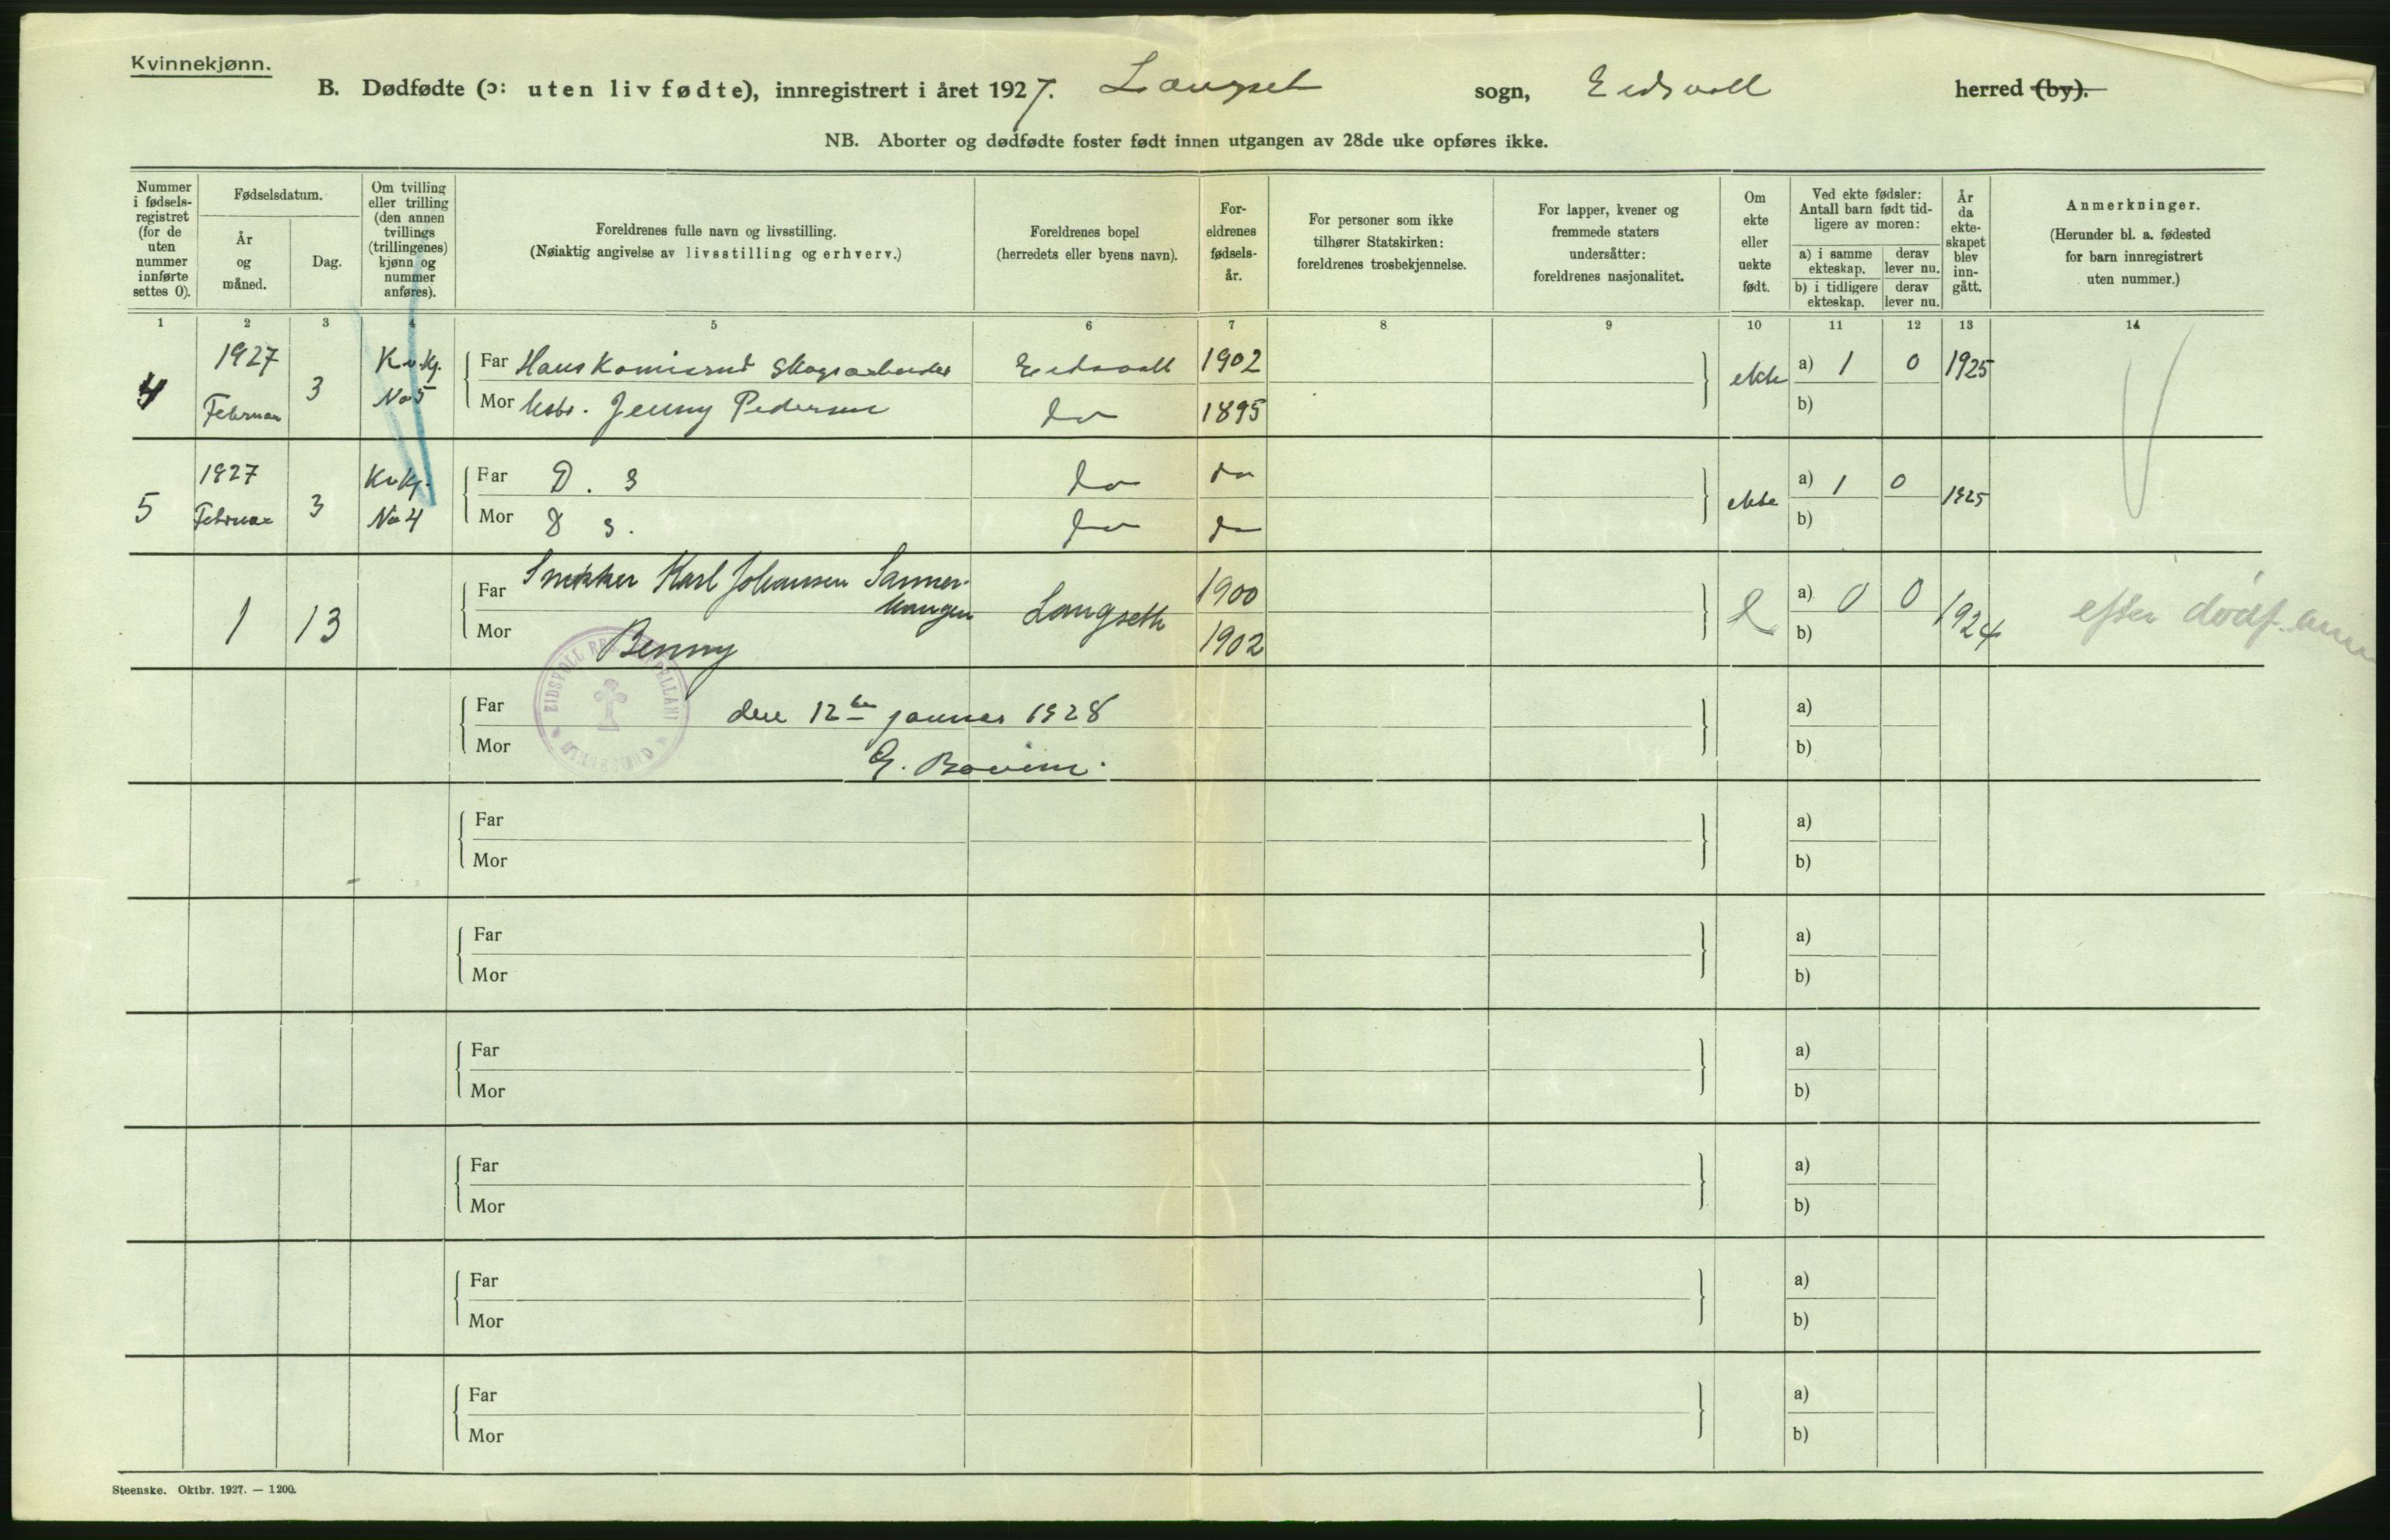 Kvinnekjønn.
B. Dødfødte (ɔ: uten liv fødte), innregistrert i året 1927. Langset sogn, Eidsvoll herred (by).
NB. Aborter og dødfødte foster født innen utgangen av 28de uke opføres ikke.
Nummer i fødselsregistret (for de uten nummer innførte settes 0).
Fødselsdatum.
År og måned.
Dag.
Om tvilling eller trilling (den annen tvillings (trillingenes) kjønn og nummer anføres).
Foreldrenes fulle navn og livsstilling.
(Nøiaktig angivelse av livsstilling og erhverv.)
Foreldrenes bopel
(herredets eller byens navn).
Foreldrenes fødselsår.
For personer som ikke tilhører Statskirken: foreldrenes trosbekjennelse.
For lapper, kvener og fremmede staters undersåtter: foreldrenes nasjonalitet.
Om ekte eller uekte født.
Ved ekte fødsler: Antall barn født tidligere av moren:
a) i samme ekteskap. derav lever nu.
b) i tidligere ekteskap. derav lever nu.
År da ekteskapet blev inngått.
Anmerkninger.
(Herunder bl. a. fødested for barn innregistrert uten nummer.)
1 2 3 4 5 6 7 8 9 10 11 12 13 14
4 1927 Februar 3 Kv.kj. No 5
Far Hans Skogsarbeider Eidsvoll 1902 ekte a) 1 0 1925
Mor Jenny Pedersen do 1895 b)
5 1927 Februar 3 Kv.kj. No 4
Far D. S do do ekte a) 1 0 1925
Mor D S. do do b)
1 13
Far Snekker Karl Johansen Sanner-
haugen Langseth 1900 e a) 0 0 1924 efter dødf.
Mor Benny 1902 b)
Far den 12te januar 1928 a)
Mor G. b)
EIDSVOLL
Far a)
Mor b)
Far a)
Mor b)
Far a)
Mor b)
Far a)
Mor b)
Far a)
Mor b)
Far a)
Mor b)
Steenske. Oktbr. 1927. — 1200.